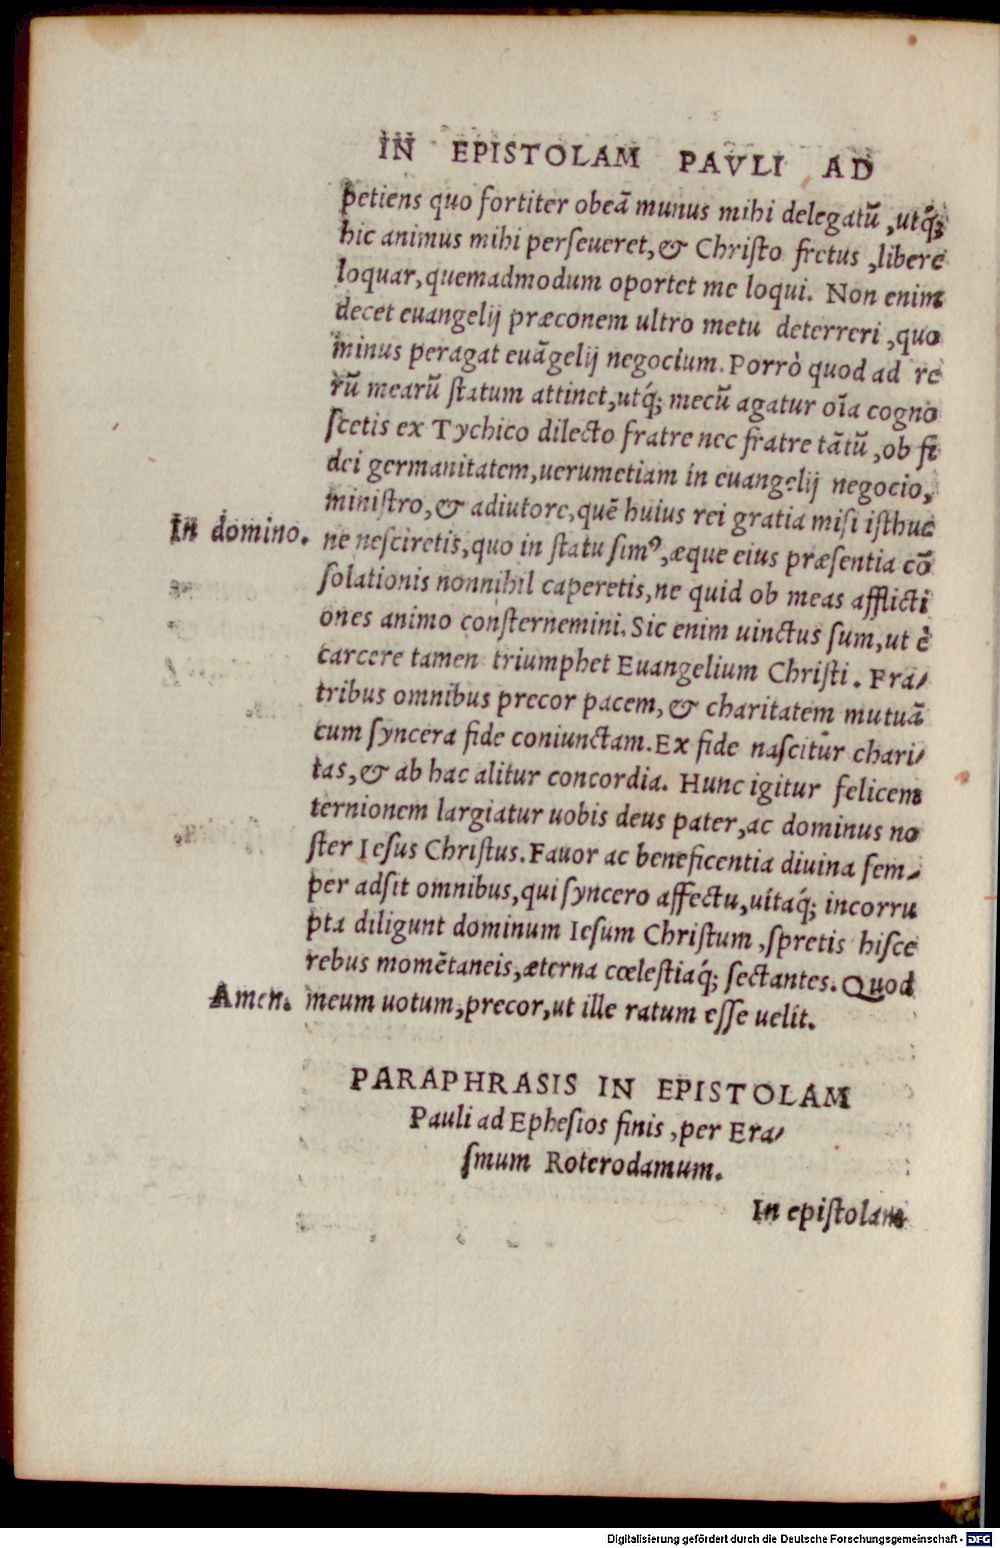 IN EPISTOLAM PAVLI AD
petiens quo fortiter obeā munus mihi delegatū, utq́;
hic animus mihi perſeueret, & Chriſto fretus, libere
loquar, quemadmodum oportet me loqui. Non enim
decet euangelij præconem ultro metu deterreri, quo
minus peragat euāgelij negocium. Porrò quod ad re
rū mearū ſtatum attinet, utq́; mecū agatur oīa cogno
ſcetis ex Tychico dilecto fratre nec fratre tātū, ob fi
dei germanitatem, uerumetiam in euangelij negocio,
miniſtro, & adiutore, quē huius rei gratia miſi iſthuc
In domino. ne neſciretis, quo in ſtatu ſimꝰ, æque eius præſentia cō
ſolationis nonnihil caperetis, ne quid ob meas afflicti
ones animo conſternemini. Sic enim uinctus ſum, ut è
carcere tamen triumphet Euangelium Chriſti. Fra/
tribus omnibus precor pacem, & charitatem mutuā
cum ſyncera fide coniunctam. Ex fide naſcitur chari/
tas, & ab hac alitur concordia. Hunc igitur felicem
ternionem largiatur uobis deus pater, ac dominus no
ſter Ieſus Chriſtus. Fauor ac beneficentia diuina ſem/
per adſit omnibus, qui ſyncero affectu, uitaq́; incorru
pta diligunt dominum Ieſum Chriſtum, ſpretis hiſce
rebus momētaneis, æterna cœleſtiaq́; ſectantes. Quod
Amen. meum uotum, precor, ut ille ratum eſſe uelit.
PARAPHRASIS IN EPISTOLAM
Pauli ad Epheſios finis, per Era/
ſmum Roterodamum.
In epiſtolam
Digitalisierung gefördert durch die Deutsche Forschungsgemeinschaft - DFG